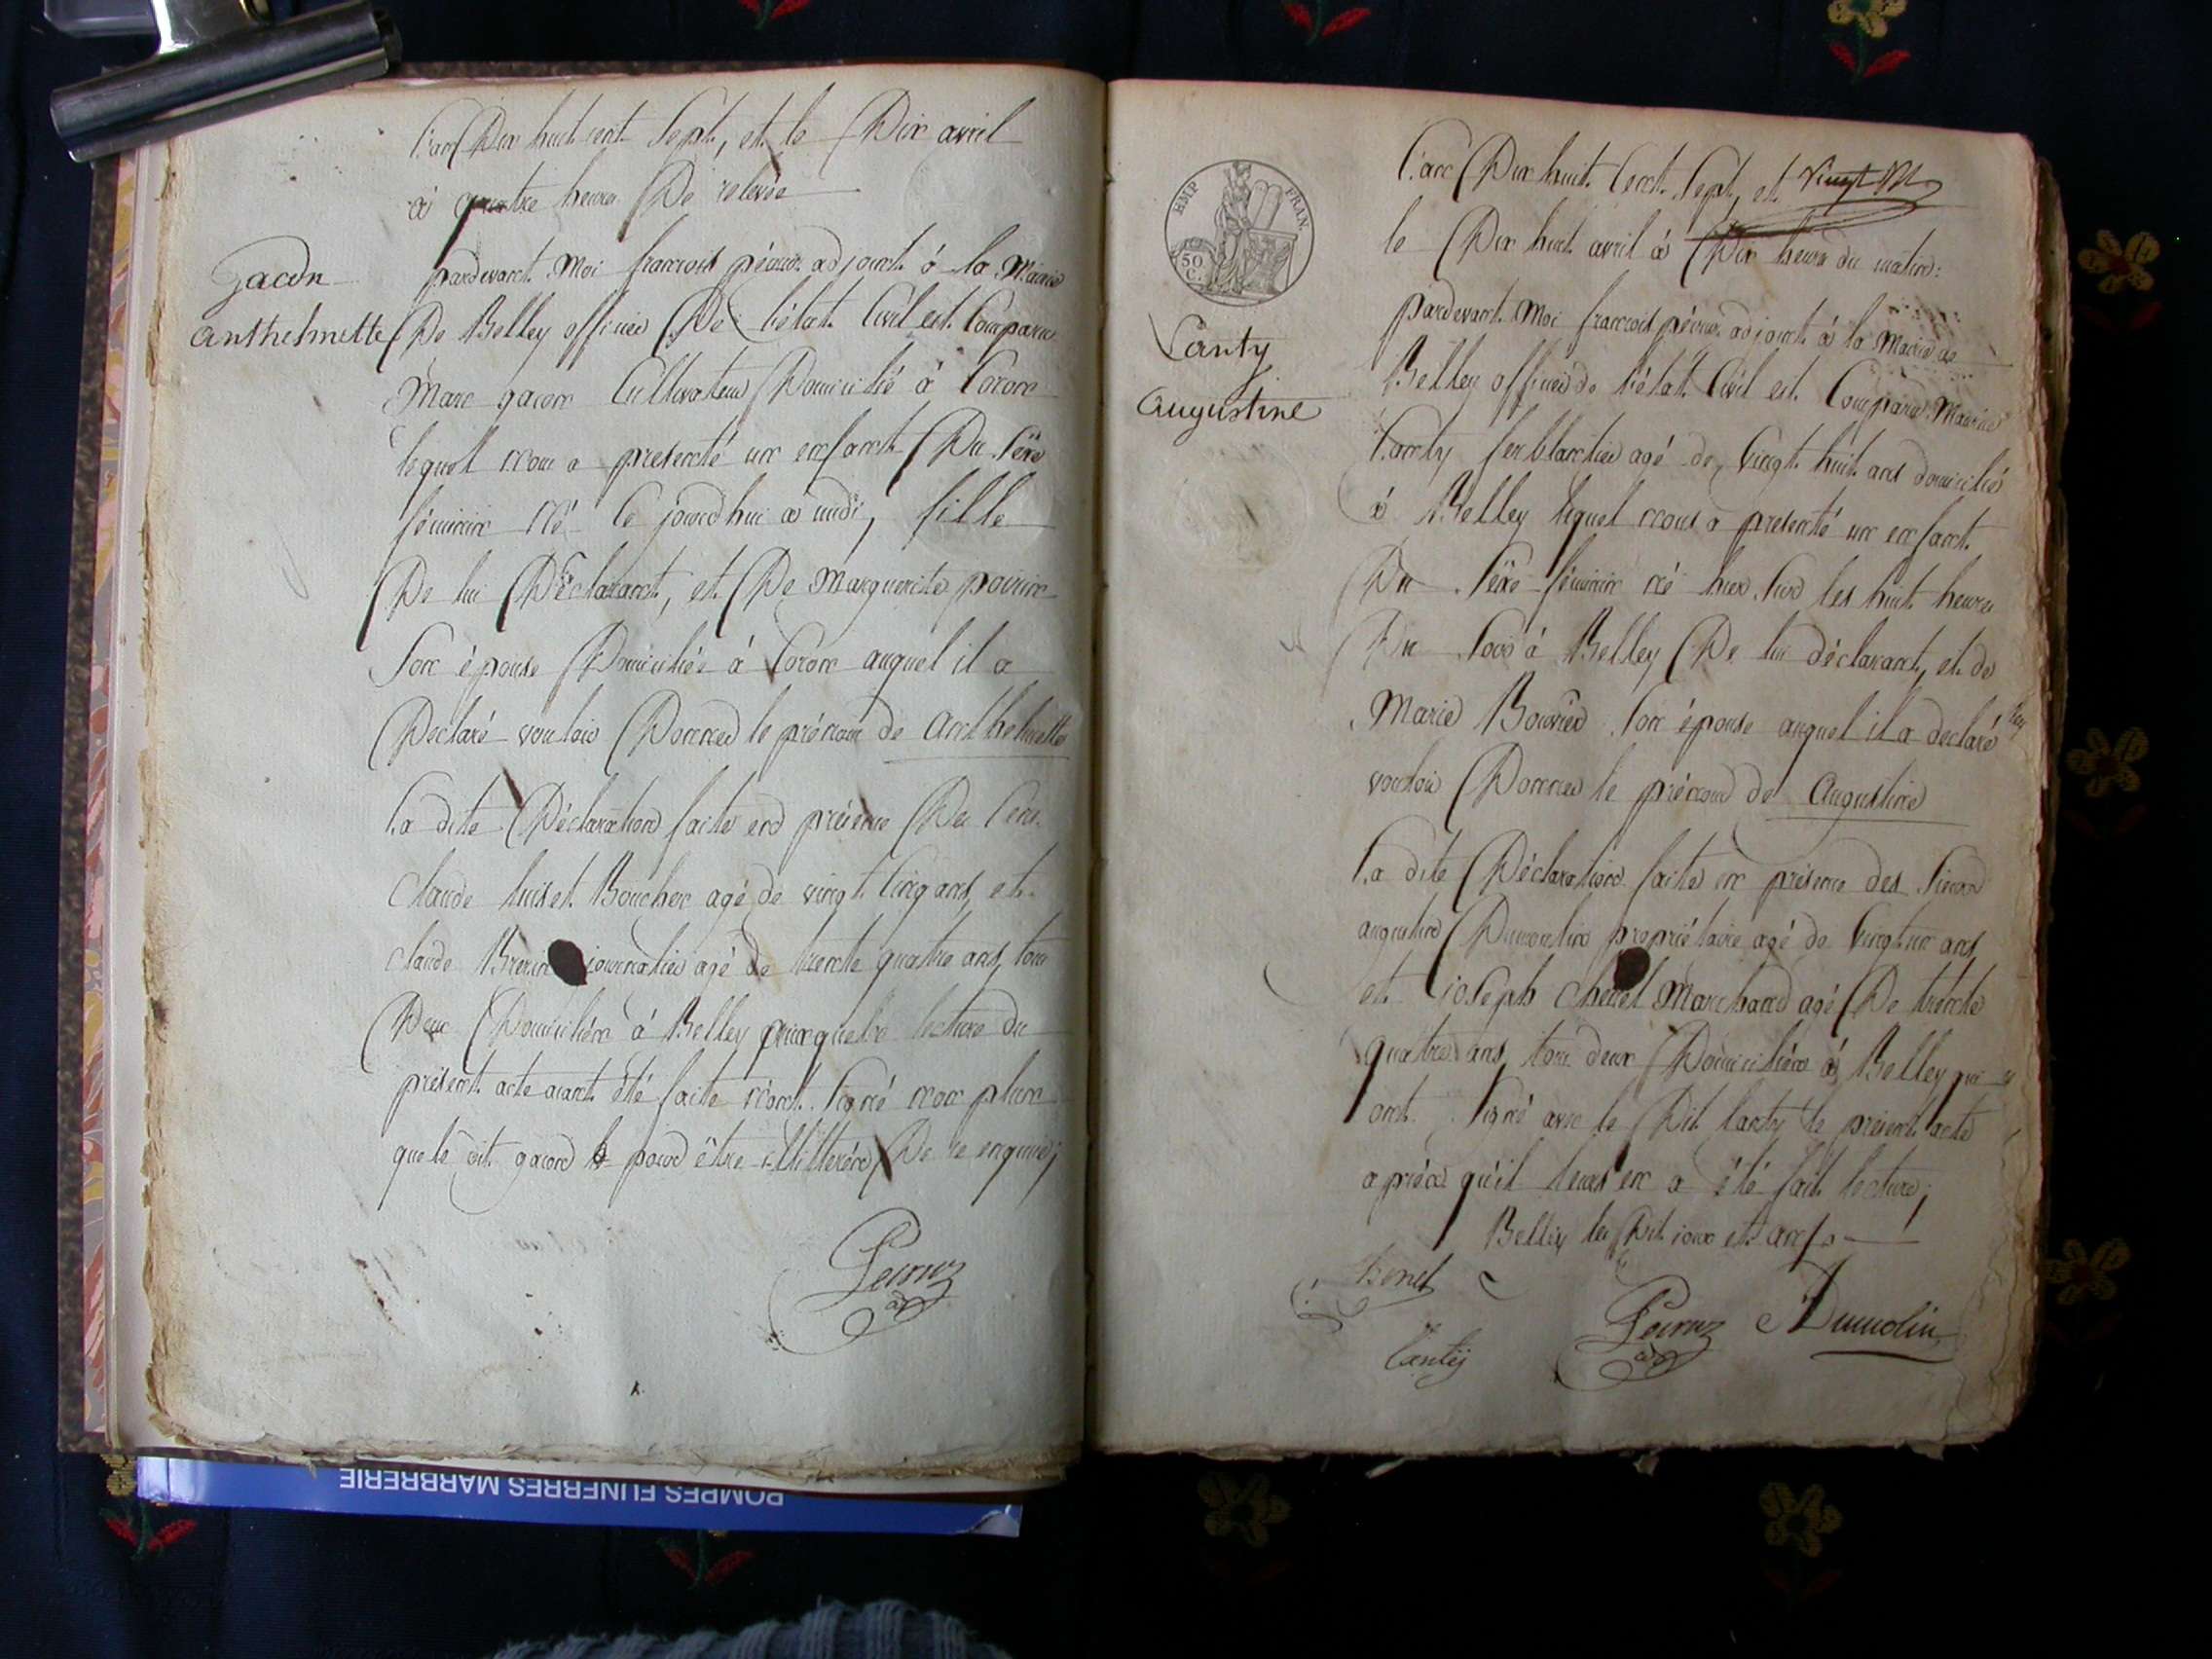 L'an Dix huit cent Sept, et le Dix avril
à quatre heures De relevée
Gacon
Anthelmette
pardevant Moi francois péirus adjoint à la Mairie
De Belley officier De l'état Civil est Comparu
Marc gacon Cultivateur Domicilié à Coron
lequel nous a presenté un enfant Du Sèxe
féminin né ce jourd'hui à midi, fille
De lui Déclarant, et De Marguerite
Son épouse Domiciliée à Coron auquel il a
Déclaré vouloir Donner le prénom de Anthelmette
La dite Déclaration faite en présence De
Claude luiset Boucher agé de vingt Cinq ans, et
claude journalier agé de trente quatre ans, tous
Deux Domiciliés à Belley lecture du
présent acte aiant été faite n'ont Signé non plus
que le dit gacon pour être illitterés De ce enquis;
EMP
FRAN.
50
C.
Lanty
Augustine
L'an Dix huit Cent Sept, et
le Dix huit avril à Dix heures du matin:
pardevant Moi francois péirus adjoint à la Mairie de
Belley officier de l'état Civil est Comparu Maurice
Lanty ferblantier agé de Vingt huit ans domicilié
à Belley lequel nous a presenté un enfant
Du Sèxe féminin né hier Sur les huit heures
Du Soir à Belley De lui déclarant, et de
Marie Bouvier Son épouse auquel il a declaré
vouloir Donner le prénom de Augustine
La dite Déclaration faite en présence des Sieurs
augustin Dumoulin propriétaire agé de Vingt un ans
et joseph Marchand agé De trente
quatre ans, tous deux Domiciliés à Belley qui
ont Signé avec le Dit Lanty le présent acte
après qu'il leurs en a été fait lecture;
Belley les Dit jour et an
Lanty
Dumolin
POMPES FUNEBRES MARBRERIE